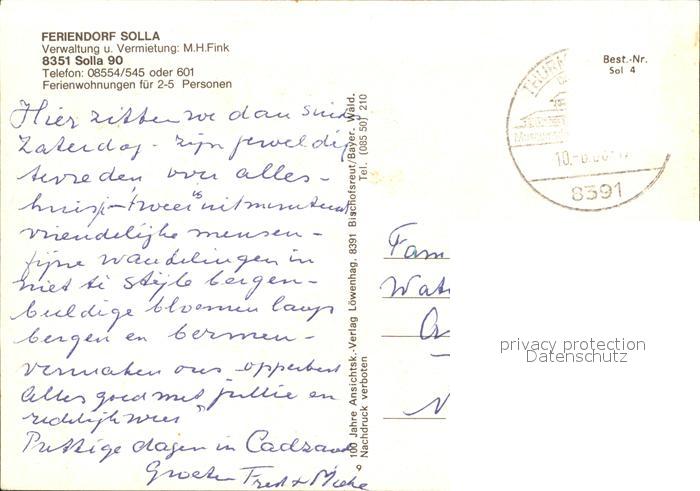 FERIENDORF SOLLA
Verwaltung u. Vermietung: M.H.Fink
8351 Solla 90
Telefon: 08554/545 oder 601
Ferienwohnungen für 2-5 Personen
Hier zitten we dan sinds
Zaterdag - zijn geweldig
tevreden over alles -
huisje - weer is uitmuntend
vriendelijke mensen -
fijne wandelingen in
niet te steile bergen -
beeldige bloemen langs
bergen en bermen -
vermaken ons opperbest
Alles goed met jullie en
redelijk weer
Prettige dagen in Cadzand
Groeten Fred + Mieke
100 Jahre Ansichtsk.-Verlag Löwenhag, 8391 Bischofsreut/Bayer. Wald.
Nachdruck verboten Tel. (085 50) 210
9
Best.-Nr.
Sol 4
THURMA
10.-6.
8391
Fam
Wat
privacy protection
Datenschutz